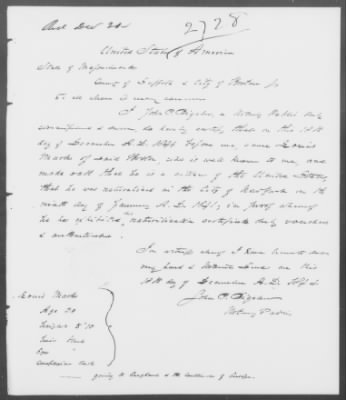 Recd Dec 20
2728
United States of America
State of Massachusetts
County of Suffolk & City of Boston ss
to all whom it may concern
I John C. a Notary Public duly
commissioned & sworn, do hereby certify, that on this
day of December A. D. before me, came Louis
Marks of said Boston, who is well known to me, and
made oath that he is a citizen of the United States,
that he was naturalized in the City of New York on the
ninth day of January A. D. in proof whereof
he exhibited his naturalization certificate duly vouched
& authenticated.
In witness whereof I have hereunto set
my hand & Notarial Seal on this
day of December A. D.
John C.
Notary Public
Louis Marks
Age
Height 5' 10
Hair
Eyes
Complexion dark
going to England & the Continent of Europe.